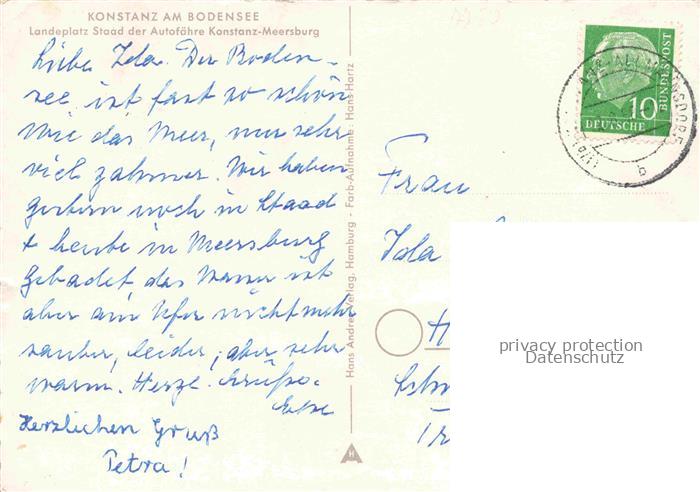 KONSTANZ AM BODENSEE
Landeplatz Staad der Autofähre Konstanz-Meersburg
Liebe Ida. Der Boden-
see ist fast so schön
wie das Meer, nur sehr
viel zahmer. Wir haben
gestern noch in Staad
+ heute in Meersburg
gebadet, das Wasser ist
aber am Ufer nicht mehr
sauber, leider, aber sehr
warm. Herzl. Grüße
Herzlichen Gruß
Petra!
Hans Andres Verlag, Hamburg - Farb-Aufnahme: Hans Hartz
H
10
DEUTSCHE
BUNDESPOST
b
Frau
Ida
H
privacy protection
Datenschutz